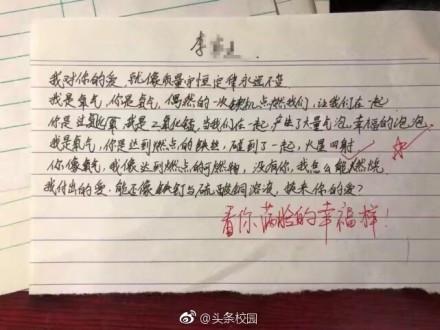 李
我对你的爱,就像质量守恒定律永远不变
我是氧气,你是氢气,偶然的一次契机点燃我们,让我们在一起
你是过氧化氢,我是二氧化锰,当我们在一起,产生了大量气泡,幸福的泡泡
我是氧气,你是达到燃点的铁丝,碰到了一起,火星四射
你像氧气,我像达到燃点的可燃物,没有你,我怎么能燃烧
我付出的爱,能否像铁钉与硫酸铜溶液,换来你的爱?
看你满脸的幸福样!
@头条校园